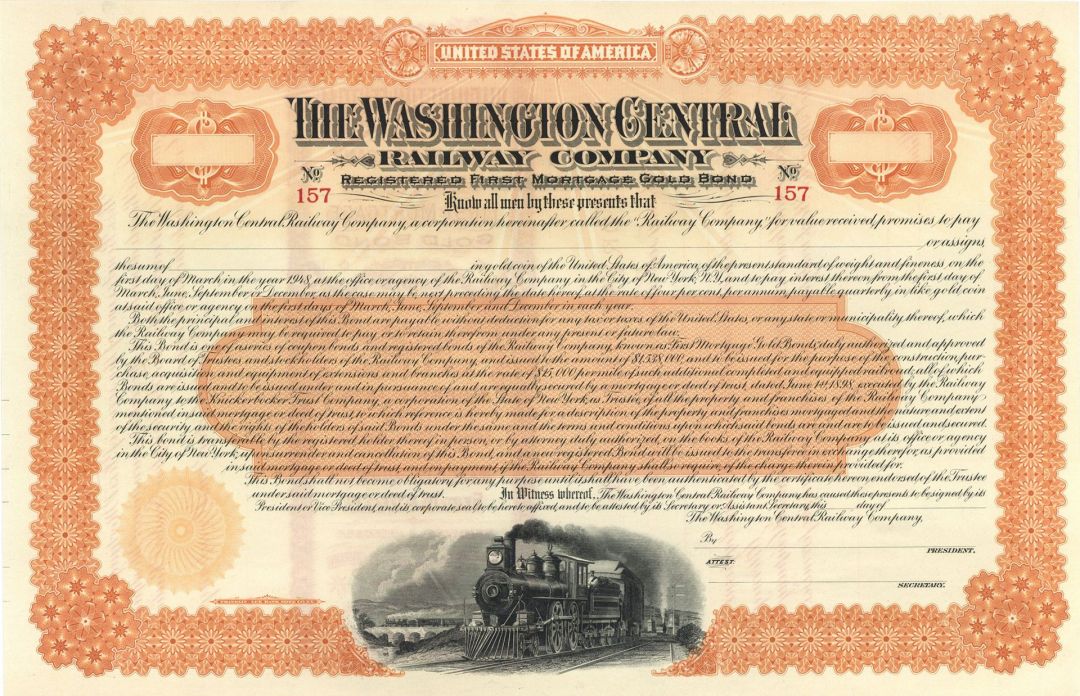 UNITED STATES OF AMERICA
THE WASHINGTON CENTRAL
RAILWAY COMPANY
No No
REGISTERED FIRST MORTGAGE GOLD BOND
157 157
Know all men by these presents that
The Washington Central Railway Company, a corporation hereinafter called the "Railway Company", for value received, promises to pay
or assigns,
the sum of in gold coin of the United States of America, of the present standard of weight and fineness, on the
first day of March in the year 1948, at the office or agency of the Railway Company, in the City of New York, N.Y. and to pay interest thereon from the first day of
March, June, September or December, as the case may be, next preceding the date hereof, at the rate of four per cent, per annum, payable quarterly, in like gold coin
at said office or agency on the first days of March, June, September and December in each year.
Both the principal and interest of this Bond are payable without deduction for any tax or taxes of the United States, or any state or municipality thereof, which
the Railway Company may be required to pay or to retain therefrom under any present or future law.
This Bond is one of a series of coupon bonds and registered bonds of the Railway Company, known as First Mortgage Gold Bonds, duly authorized and approved
by the Board of Trustees and stockholders of the Railway Company, and issued to the amount of $1,538,000, and to be issued for the purpose of the construction, pur-
chase, acquisition and equipment of extensions and branches at the rate of $15,000 per mile of such additional completed and equipped railroad, all of which
Bonds are issued and to be issued under and in pursuance of, and are equally secured by a mortgage or deed of trust, dated June 1st 1898, executed by the Railway
Company to the Knickerbocker Trust Company, a corporation of the State of New York, as Trustee, of all the property and franchises of the Railway Company
mentioned in said mortgage or deed of trust, to which reference is hereby made for a description of the property and franchises mortgaged and the nature and extent
of the security, and the rights of the holders of said Bonds under the same and the terms and conditions upon which said bonds are and are to be issued and secured.
This bond is transferable by the registered holder thereof in person, or by attorney duly authorized, on the books of the Railway Company at its office or agency
in the City of New York, on surrender and cancellation of this Bond, and a new registered Bond will be issued to the transferee in exchange therefor, as provided
in said mortgage or deed of trust, and on payment, if the Railway Company shall so require, of the charge therein provided for.
This Bond shall not become obligatory for any purpose until it shall have been authenticated by the certificate hereon endorsed of the Trustee
under said mortgage or deed of trust. In Witness whereof, The Washington Central Railway Company has caused these presents to be signed by its
President or Vice President, and its corporate seal to be hereto affixed, and to be attested by its Secretary or Assistant Secretary, this day of
The Washington Central Railway Company,
By
PRESIDENT.
ATTEST:
SECRETARY.